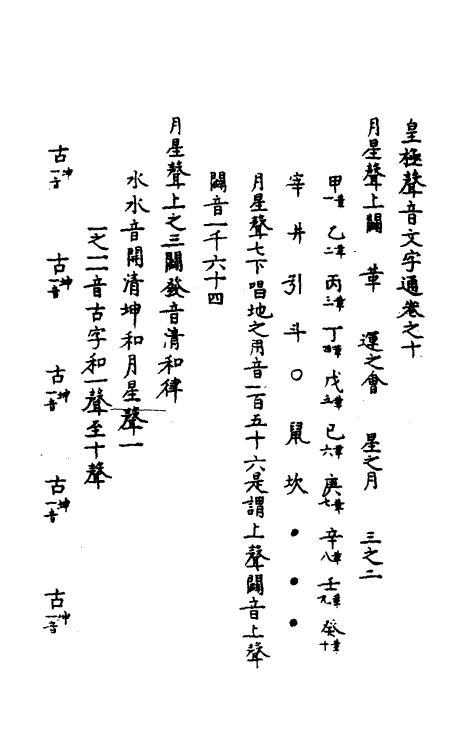 皇極聲音文字通卷之十
月星聲上闢　革　運之會　星之月　三之二
甲一革乙二革丙三革丁四革戊五革己六革庚七革辛八革壬九革癸十革
宰井引斗○鼠坎●●●
月星聲七下唱地之用音一百五十六是謂上聲闢音上聲
闢音一千六十四
月星聲上之三闢發音清和律
水水音開清坤和月星聲一
一之二音古字和一聲至十聲
古坤一音　古坤一音　古坤一音　古坤一音　古坤一音